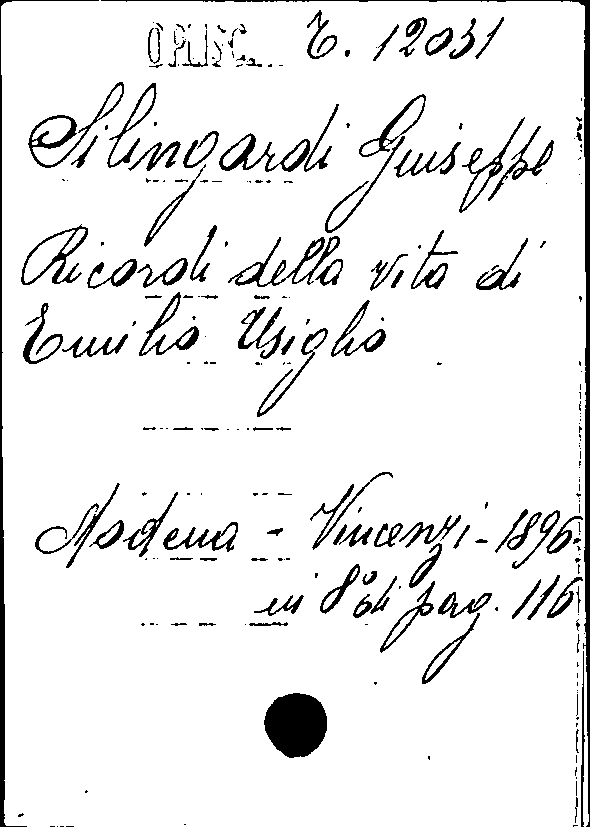 OPUSC. T. 12031
Silingardi Giuseppe
Ricordi della vita di
Emilio Usiglio
Modena - Vincenzi - 1896
in 8° di pag. 116